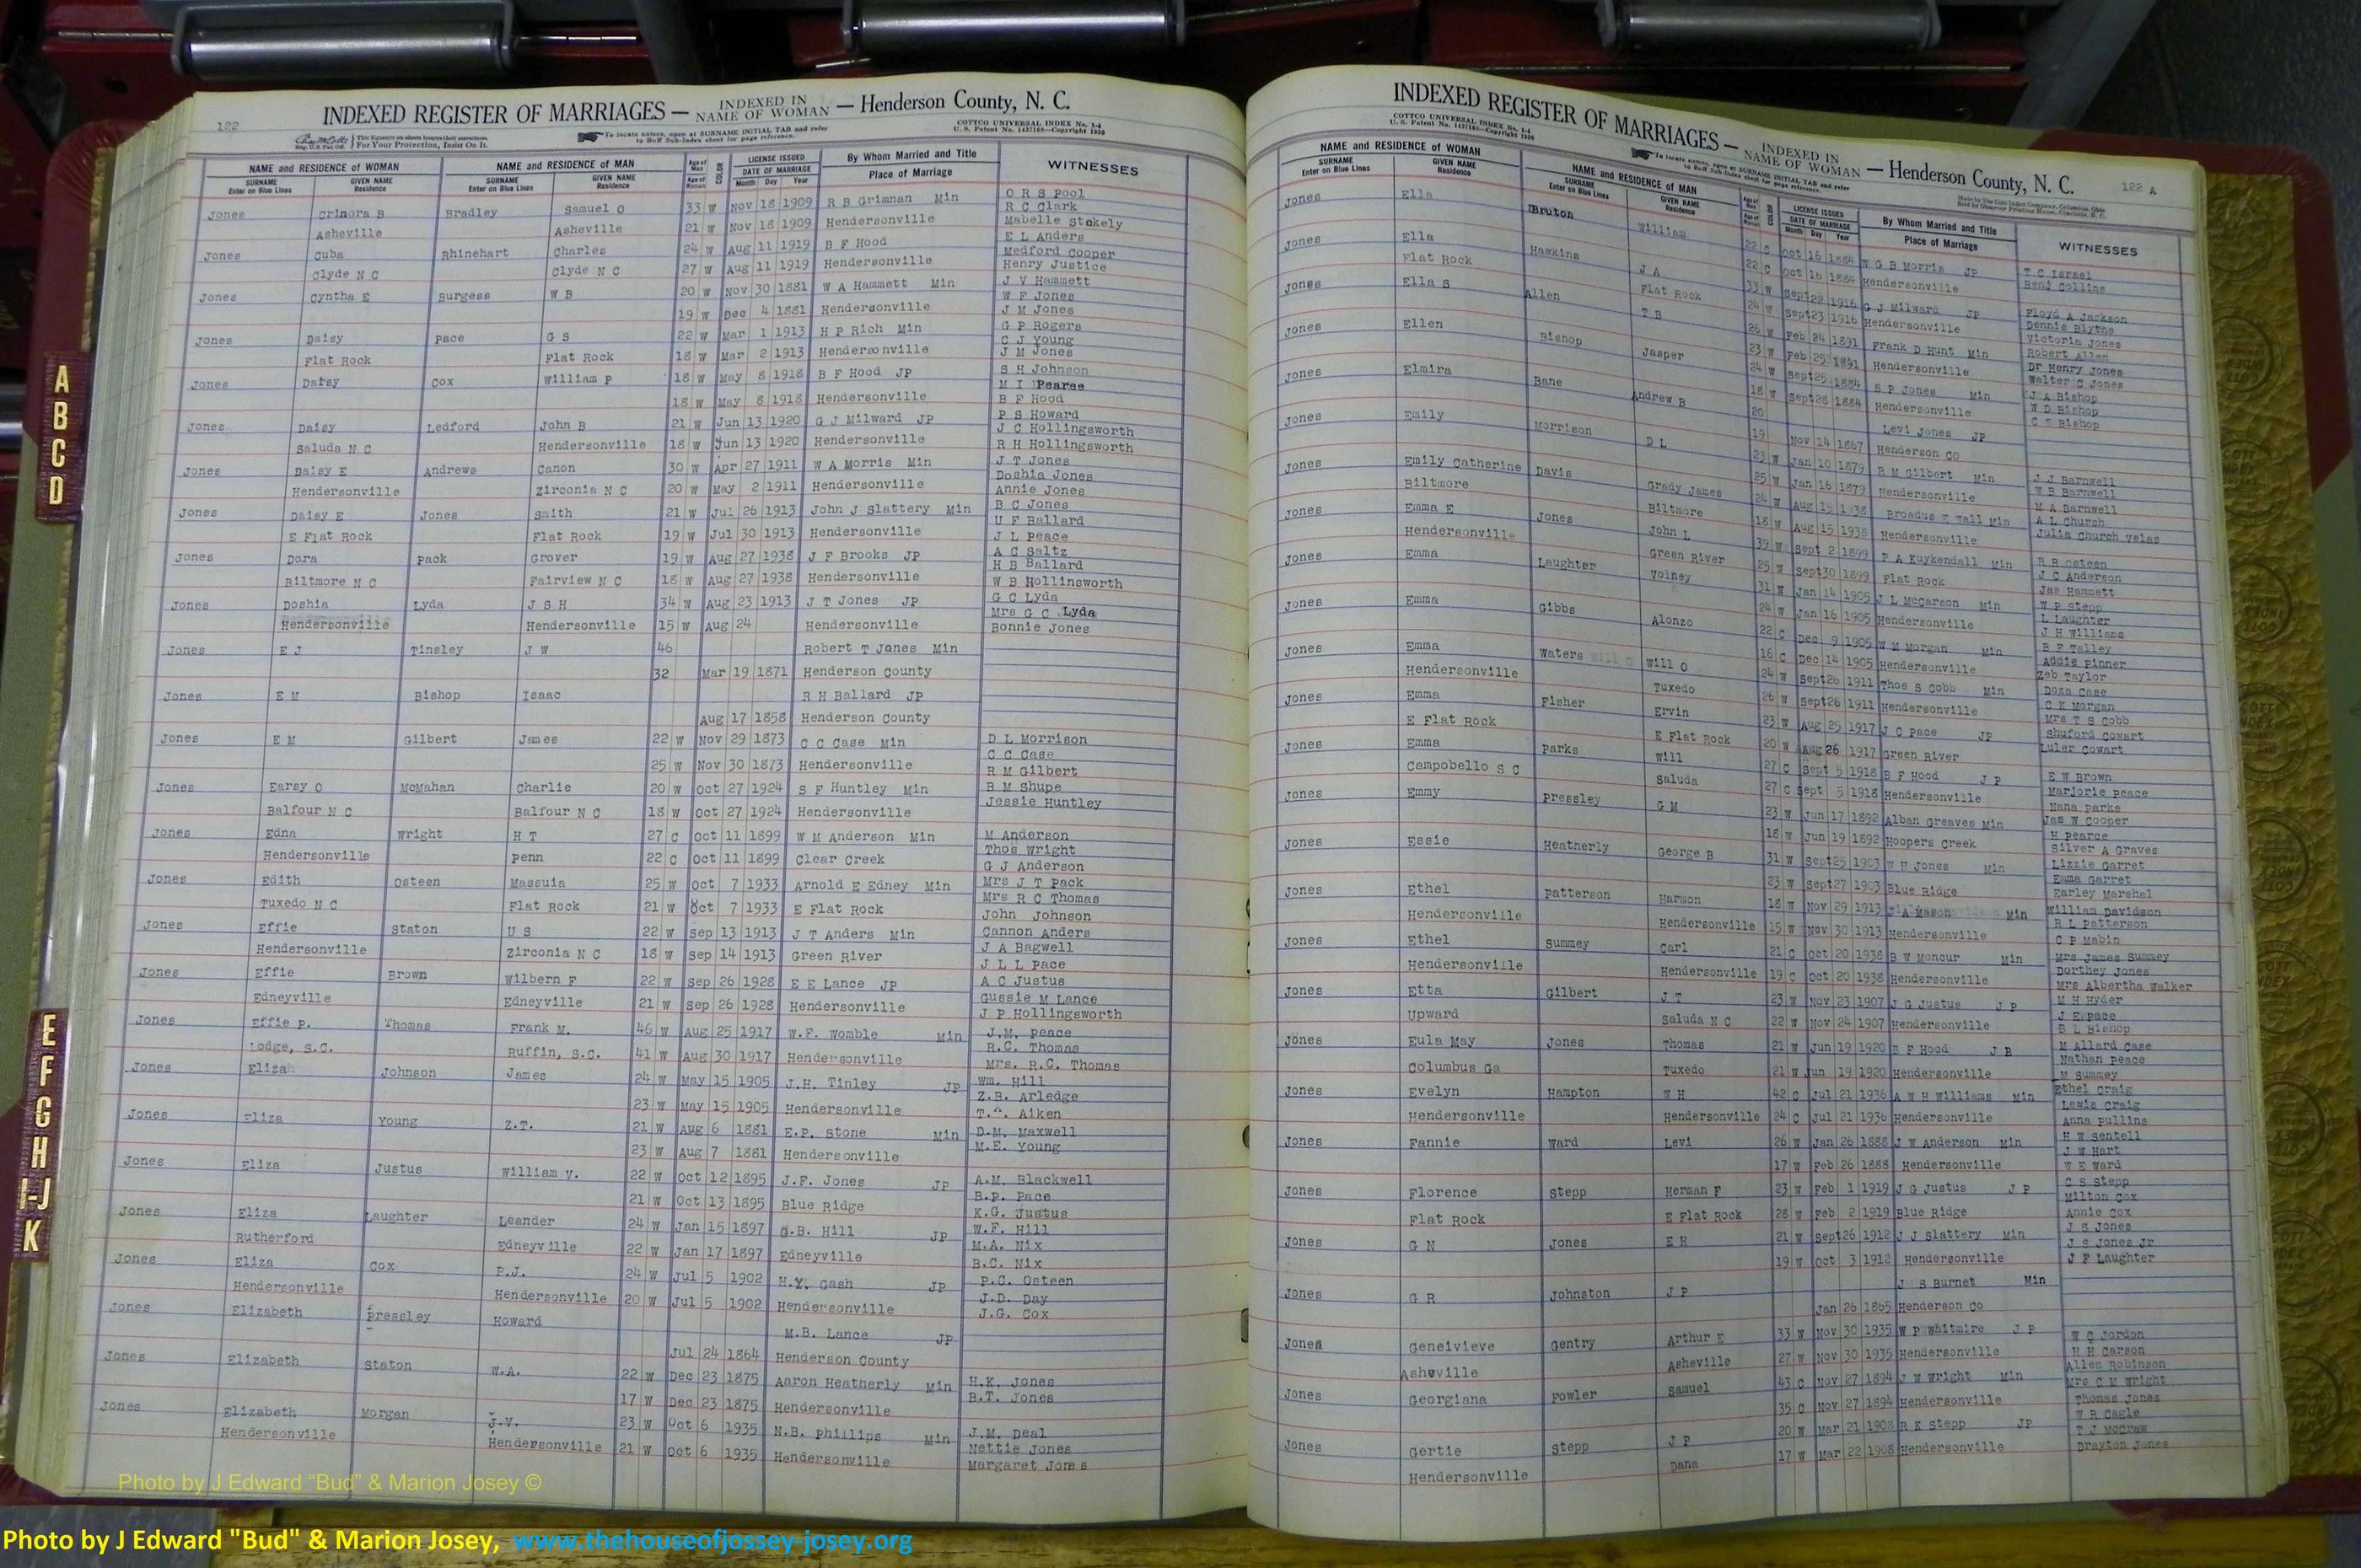 INDEXED REGISTER OF MARRIAGES — INDEXED IN NAME OF WOMAN — Henderson County, N. C.
122
This Signature on sheets insures their correctness. For Your Protection, Insist On It.
To locate names, open at SURNAME INITIAL TAB and refer to Buff Sub-Index sheet for page reference.
COTTCO UNIVERSAL INDEX No. 1-4
U. S. Patent No. 1437169—Copyright 1930
NAME and RESIDENCE OF WOMAN NAME and RESIDENCE OF MAN Age of Man Age of Woman COLOR LICENSE ISSUED DATE OF MARRIAGE By Whom Married and Title Place of Marriage WITNESSES
SURNAME Enter on Blue Lines GIVEN NAME Residence SURNAME Enter on Blue Lines GIVEN NAME Residence Month Day Year
Jones Crinora B Bradley Samuel O 33 W Nov 18 1909 R B Grimnan Min O R S Pool
R C Clark
Asheville Asheville 21 W Nov 18 1909 Hendersonville Mabelle Stokely
Jones Cuba Rhinehart Charles 24 W Aug 11 1919 B F Hood E L Anders
Medford Cooper
Clyde N C Clyde N C 27 W Aug 11 1919 Hendersonville Henry Justice
Jones Cyntha E Burgess W B 20 W Nov 30 1881 W A Hammett Min J V Hammett
W F Jones
19 W Dec 4 1881 Hendersonville J M Jones
Jones Daisy Pace G S 22 W Mar 1 1913 H P Rich Min G P Rogers
C J Young
Flat Rock Flat Rock 18 W Mar 2 1913 Hendersonville J M Jones
Jones Daisy Cox William P 18 W May 8 1918 B F Hood JP S H Johnson
M I Pearse
18 W May 8 1918 Hendersonville B F Hood
Jones Daisy Ledford John B 21 W Jun 13 1920 G J Milward JP P S Howard
J C Hollingsworth
Saluda N C Hendersonville 18 W Jun 13 1920 Hendersonville R H Hollingsworth
Jones Daisy E Andrews Canon 30 W Apr 27 1911 W A Morris Min J T Jones
Doshia Jones
Hendersonville Zirconia N C 20 W May 2 1911 Hendersonville Annie Jones
Jones Daisy E Jones Smith 21 W Jul 26 1913 John J Slattery Min B C Jones
U F Ballard
E Flat Rock Flat Rock 19 W Jul 30 1913 Hendersonville J L Peace
Jones Dora Pack Grover 19 W Aug 27 1938 J F Brooks JP A C Saltz
H B Ballard
Biltmore N C Fairview N C 18 W Aug 27 1938 Hendersonville W B Hollinsworth
Jones Doshia Lyda J S H 34 W Aug 23 1913 J T Jones JP G C Lyda
Mrs G C Lyda
Hendersonville Hendersonville 15 W Aug 24 Hendersonville Bonnie Jones
Jones E J Tinsley J W 46 Robert T Jones Min
32 Mar 19 1871 Henderson County
Jones E M Bishop Isaac R H Ballard JP
Aug 17 1858 Henderson County
Jones E M Gilbert James 22 W Nov 29 1873 C C Case Min D L Morrison
C C Case
25 W Nov 30 1873 Hendersonville R M Gilbert
Jones Earsy O McMahan Charlie 20 W Oct 27 1924 S F Huntley Min B M Shupe
Jessie Huntley
Balfour N C Balfour N C 18 W Oct 27 1924 Hendersonville
Jones Edna Wright H T 27 C Oct 11 1899 W M Anderson Min M Anderson
Thos Wright
Hendersonville Penn 22 C Oct 11 1899 Clear Creek G J Anderson
Jones Edith Osteen Massuia 25 W Oct 7 1933 Arnold E Edney Min Mrs J T Pack
Mrs R C Thomas
Tuxedo N C Flat Rock 21 W Oct 7 1933 E Flat Rock John Johnson
Jones Effie Staton U S 22 W Sep 13 1913 J T Anders Min Cannon Anders
J A Bagwell
Hendersonville Zirconia N C 18 W Sep 14 1913 Green River J L L Pace
Jones Effie Brown Wilbern F 22 W Sep 26 1928 E E Lance JP A C Justus
Gussie M Lance
Edneyville Edneyville 21 W Sep 26 1928 Hendersonville J P Hollingsworth
Jones Effie P. Thomas Frank M. 46 W Aug 25 1917 W.F. Womble Min J.M. Peace
R.C. Thomas
Lodge, S.C. Ruffin, S.C. 41 W Aug 30 1917 Hendersonville Mrs. R.C. Thomas
Jones Elizah Johnson James 24 W May 15 1905 J.H. Tinley JP Wm. Hill
Z.B. Arledge
23 W May 15 1905 Hendersonville Aiken
Jones Eliza Young Z.T. 21 W Aug 6 1881 E.P. Stone Min D.M. Maxwell
M.E. Young
23 W Aug 7 1881 Hendersonville
Jones Eliza Justus William V. 22 W Oct 12 1895 J.F. Jones JP A.M. Blackwell
B.P. Pace
21 W Oct 13 1895 Blue Ridge K.G. Justus
Jones Eliza Laughter Leander 24 W Jan 15 1897 G.B. Hill JP W.F. Hill
M.A. Nix
Rutherford Edneyville 22 W Jan 17 1897 Edneyville B.C. Nix
Jones Eliza Cox P.J. 24 W Jul 5 1902 H.Y. Gash JP P.C. Osteen
J.D. Day
Hendersonville Hendersonville 20 W Jul 5 1902 Hendersonville J.G. Cox
Jones Elizabeth Pressley Howard M.B. Lance JP
Jul 24 1864 Henderson County
Jones Elizabeth Staton W.A. 22 W Dec 23 1875 Aaron Heatherly Min H.K. Jones
B.T. Jones
17 W Dec 23 1875 Hendersonville
Jones Elizabeth Morgan J.V. 23 W Oct 6 1935 N.B. Phillips Min J.M. Deal
Nettie Jones
Hendersonville Hendersonville 21 W Oct 6 1935 Hendersonville Margaret Jones
INDEXED REGISTER OF MARRIAGES — INDEXED IN NAME OF WOMAN — Henderson County, N. C.
122 A
COTTCO UNIVERSAL INDEX No. 1-4
U. S. Patent No. 1437169—Copyright 1930
To locate names, open at SURNAME INITIAL TAB and refer to Buff Sub-Index sheet for page reference.
NAME and RESIDENCE OF WOMAN NAME and RESIDENCE OF MAN COLOR LICENSE ISSUED DATE OF MARRIAGE By Whom Married and Title Place of Marriage WITNESSES
SURNAME Enter on Blue Lines GIVEN NAME Residence SURNAME Enter on Blue Lines GIVEN NAME Residence Month Day Year
Jones Ella Bruton William 22 C Oct 16 1884 W G B Morris JP T C Israel
22 C Oct 16 1884 Hendersonville Collins
Jones Ella Hawkins J A 33 W Sept 22 1916 G J Milward JP Floyd A Jackson
Dennis Blythe
Flat Rock Flat Rock 24 W Sept 23 1916 Hendersonville Victoria Jones
Jones Ella S Allen T B 26 W Feb 24 1891 Frank D Hunt Min Robert Allen
Dr Henry Jones
23 W Feb 25 1891 Hendersonville Walter C Jones
Jones Ellen Bishop Jasper 24 W Sept 25 1884 S P Jones Min J A Bishop
W D Bishop
18 W Sept 28 1884 Hendersonville C S Bishop
Jones Elmira Bane Andrew B 20 Levi Jones JP
19 Nov 14 1867 Henderson Co
Jones Emily Morrison D L 23 W Jan 10 1879 R M Gilbert Min J J Barnwell
W B Barnwell
25 W Jan 16 1879 Hendersonville M A Barnwell
Jones Emily Catherine Davis Grady James 24 W Aug 15 1938 Broadus E Wall Min A L Church
Julia Church Velas
Biltmore Biltmore 18 W Aug 15 1938 Hendersonville
Jones Emma E Jones John L 39 W Sept 2 1899 P A Kuykendall Min R R Osteen
J C Anderson
Hendersonville Green River 25 W Sept 30 1899 Flat Rock Jas Hammett
Jones Emma Laughter Volney 31 W Jan 14 1905 J L McCarson Min W P Stepp
L Laughter
24 W Jan 16 1905 Hendersonville J H Williams
Jones Emma Gibbs Alonzo 22 C Dec 9 1905 W M Morgan Min B F Talley
Addie Pinner
16 C Dec 14 1905 Hendersonville Zeb Taylor
Jones Emma Waters Will O 24 W Sept 26 1911 Thos S Cobb Min Doza Case
C K Morgan
Hendersonville Tuxedo 26 W Sept 26 1911 Hendersonville Mrs T S Cobb
Jones Emma Fisher Ervin 23 W Aug 25 1917 J C Pace JP Shuford Cowart
Luler Cowart
E Flat Rock E Flat Rock 20 W Aug 26 1917 Green River
Jones Emma Parks Will 27 C Sept 5 1918 B F Hood J P E W Brown
Marjorie Peace
Campobello S C Saluda 27 C Sept 5 1918 Hendersonville Nana Parks
Jones Emmy Pressley G M 23 W Jun 17 1892 Alban Greaves Min Jas W Cooper
H Pearce
18 W Jun 19 1892 Hoopers Creek Silver A Graves
Jones Essie Heatherly George B 31 W Sept 25 1903 W H Jones Min Lizzie Garret
Emma Garret
23 W Sept 27 1903 Blue Ridge Earley Marshal
Jones Ethel Patterson Harmon 18 W Nov 29 1913 J A Mason Min William Davidson
R L Patterson
Hendersonville Hendersonville 15 W Nov 30 1913 Hendersonville C P Mabin
Jones Ethel Summey Carl 21 C Oct 20 1938 B W Moncur Min Mrs James Summey
Dorthey Jones
Hendersonville Hendersonville 19 C Oct 20 1938 Hendersonville Mrs Albertha Walker
Jones Etta Gilbert J T 23 W Nov 23 1907 J G Justus J P M H Hyder
J E Pace
Upward Saluda N C 22 W Nov 24 1907 Hendersonville B L Bishop
Jones Eula May Jones Thomas 21 W Jun 19 1920 B F Hood J P M Allard Case
Nathan Peace
Columbus Ga Tuxedo 21 W Jun 19 1920 Hendersonville M Summey
Jones Evelyn Hampton W H 42 C Jul 21 1936 A W H Williams Min Ethel Craig
Lewis Craig
Hendersonville Hendersonville 24 C Jul 21 1936 Hendersonville Anna Pullins
Jones Fannie Ward Levi 26 W Jan 26 1888 J W Anderson Min H W Sentell
J W Hart
17 W Feb 26 1888 Hendersonville W E Ward
Jones Florence Stepp Herman F 23 W Feb 1 1919 J G Justus J P C S Stepp
Milton Cox
Flat Rock E Flat Rock 28 W Feb 2 1919 Blue Ridge Annie Cox
Jones G N Jones E H 21 W Sept 26 1912 J J Slattery Min J S Jones
J S Jones Jr
19 W Oct 3 1912 Hendersonville J F Laughter
Jones G R Johnston J P J S Burnet Min
Jan 26 1865 Henderson Co
Jones Genievieve Gentry Arthur E 33 W Nov 30 1935 W P Whitmire J P W C Jordon
H H Carson
Asheville Asheville 27 W Nov 30 1935 Hendersonville Allen Robinson
Jones Georgiana Fowler Samuel 43 C Nov 27 1894 J W Wright Min Mrs C M Wright
Thomas Jones
35 C Nov 27 1894 Hendersonville W R Cagle
Jones Gertie Stepp J P 20 W Mar 21 1908 R K Stepp JP T J McCraw
Drayton Jones
Hendersonville Dana 17 W Mar 22 1908 Hendersonville
A
B
C
D
E
F
G
H
I-J
K
Photo by J Edward “Bud” & Marion Josey ©
Photo by J Edward "Bud" & Marion Josey, www.thehouseofjossey-josey.org